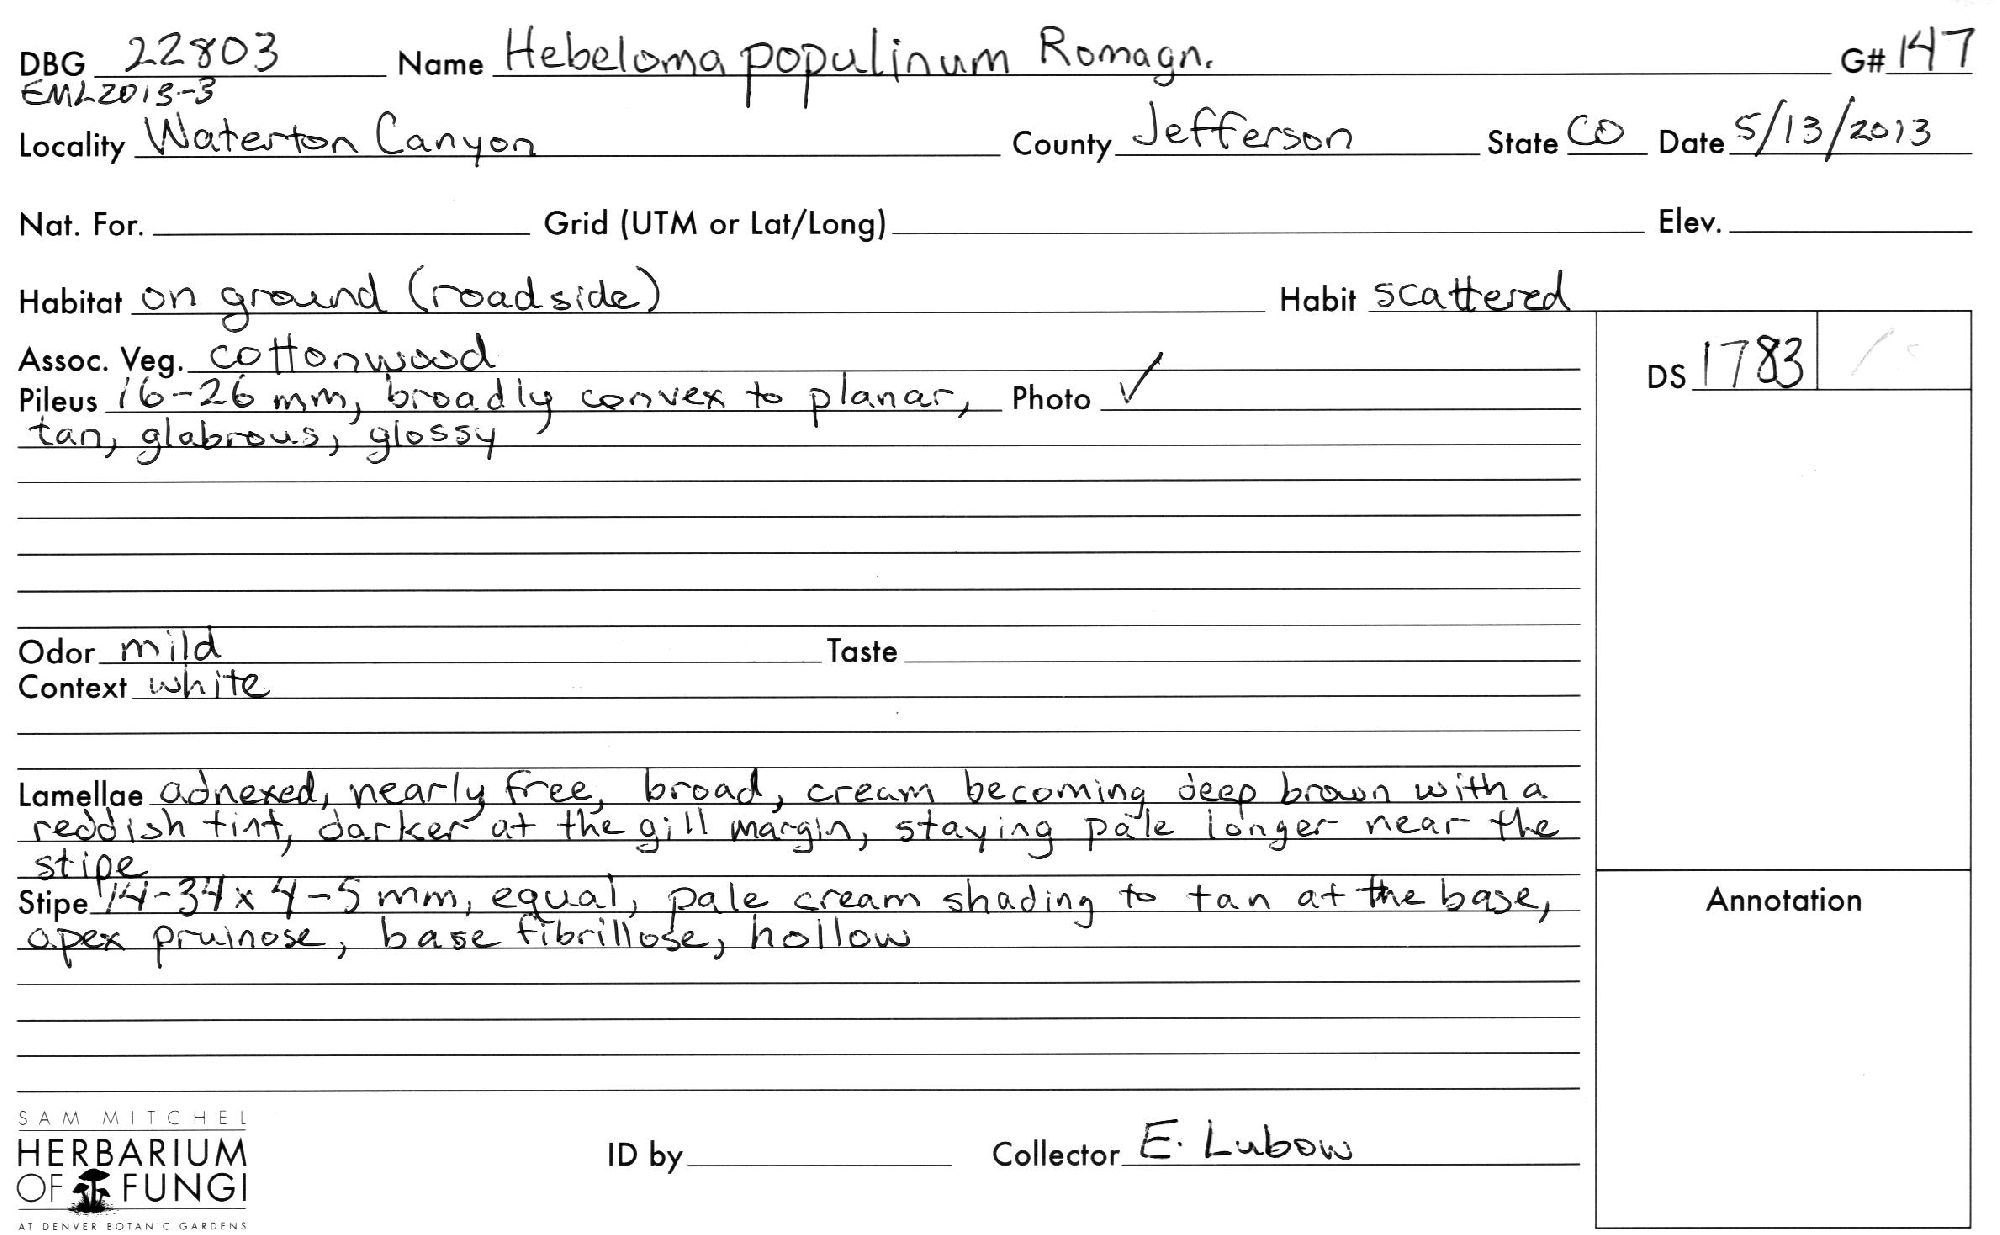 DBG 22803 Name Hebeloma populinum Romagn. G# 147
EML2013-3
Locality Waterton Canyon County Jefferson State CO Date 5/13/2013
Nat. For. Grid (UTM or Lat/Long) Elev.
Habitat on ground (roadside) Habit scattered
Assoc. Veg. cottonwood DS 1783
Pileus 16-26 mm, broadly convex to planar, Photo ✓
tan, glabrous, glossy
Odor mild Taste
Context white
Lamellae adnexed, nearly free, broad, cream becoming deep brown with a
reddish tint, darker at the gill margin, staying pale longer near the
stipe
Stipe 14-34 x 4-5 mm, equal, pale cream shading to tan at the base,
apex pruinose, base fibrillose, hollow
Annotation
SAM MITCHEL
HERBARIUM
OF FUNGI
AT DENVER BOTANIC GARDENS
ID by Collector E. Lubow